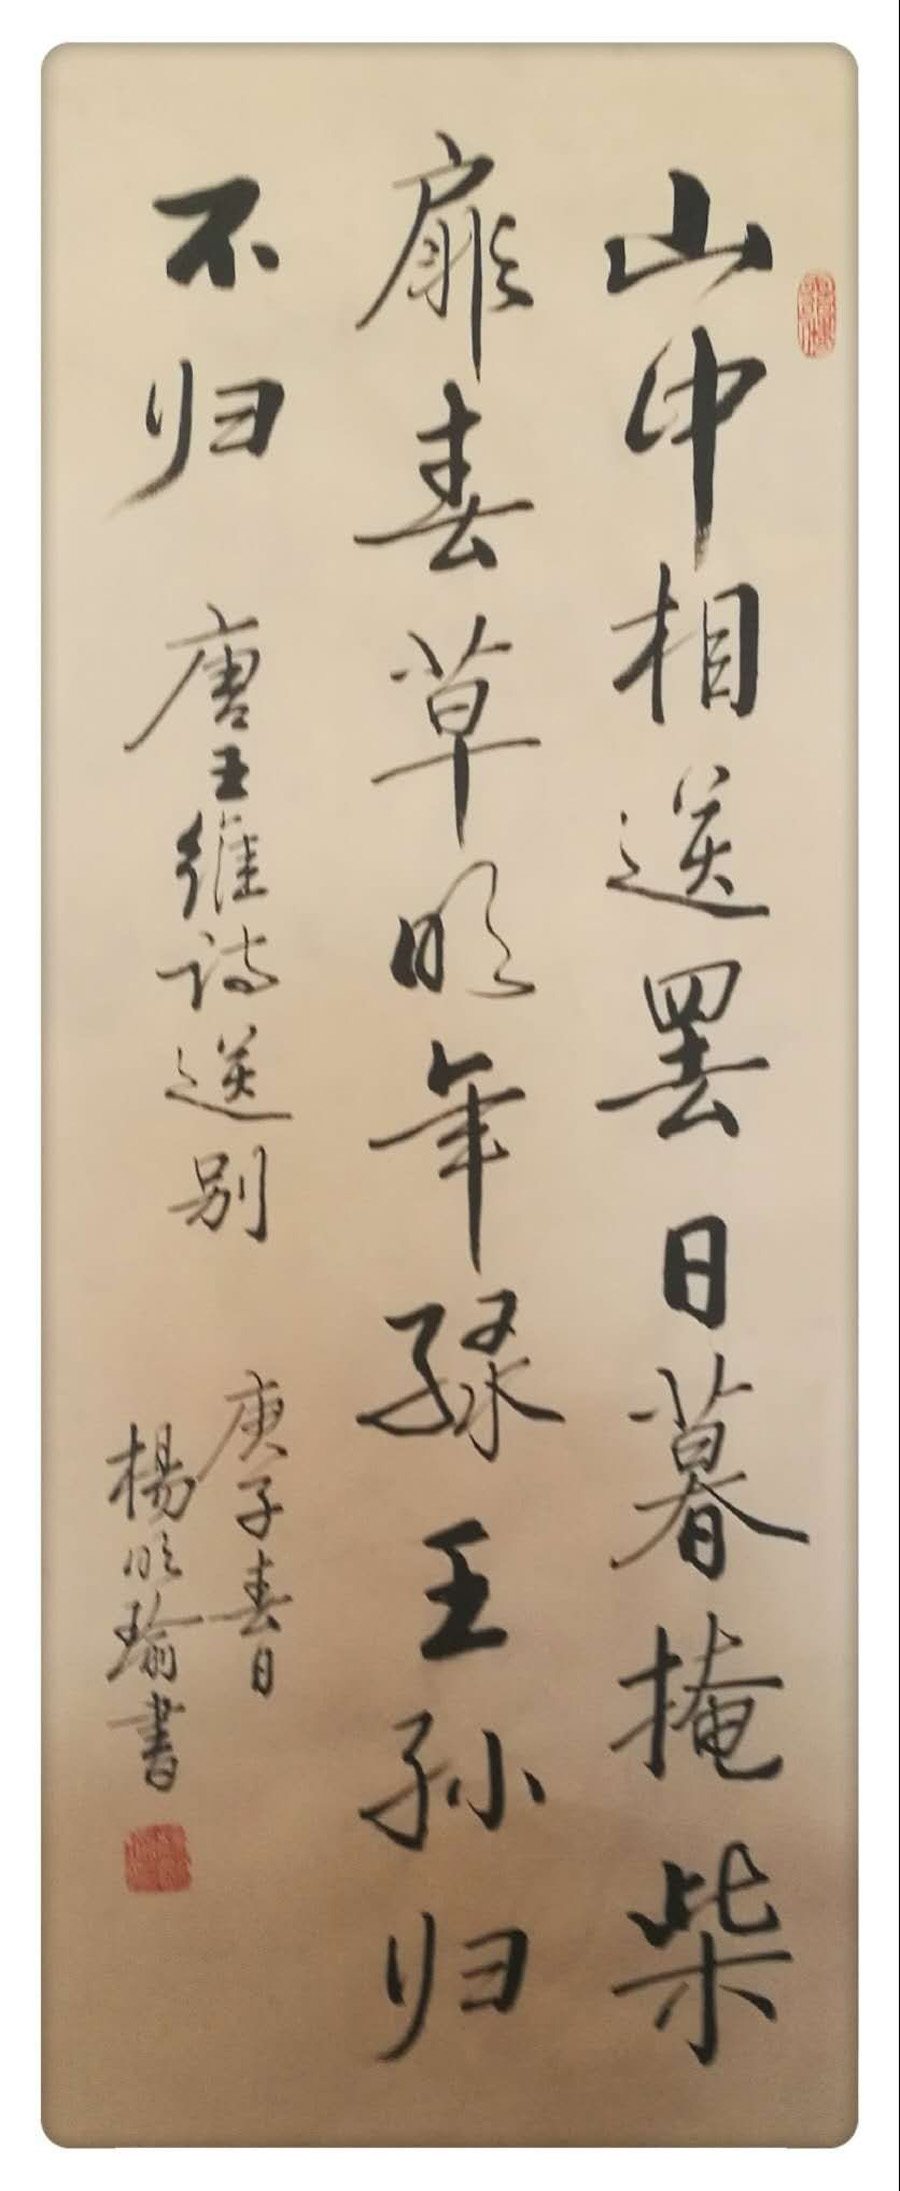 山中相送罢日暮掩柴
扉春草明年绿王孙归
不归 唐王维诗送别
庚子春日
楊明瑜書